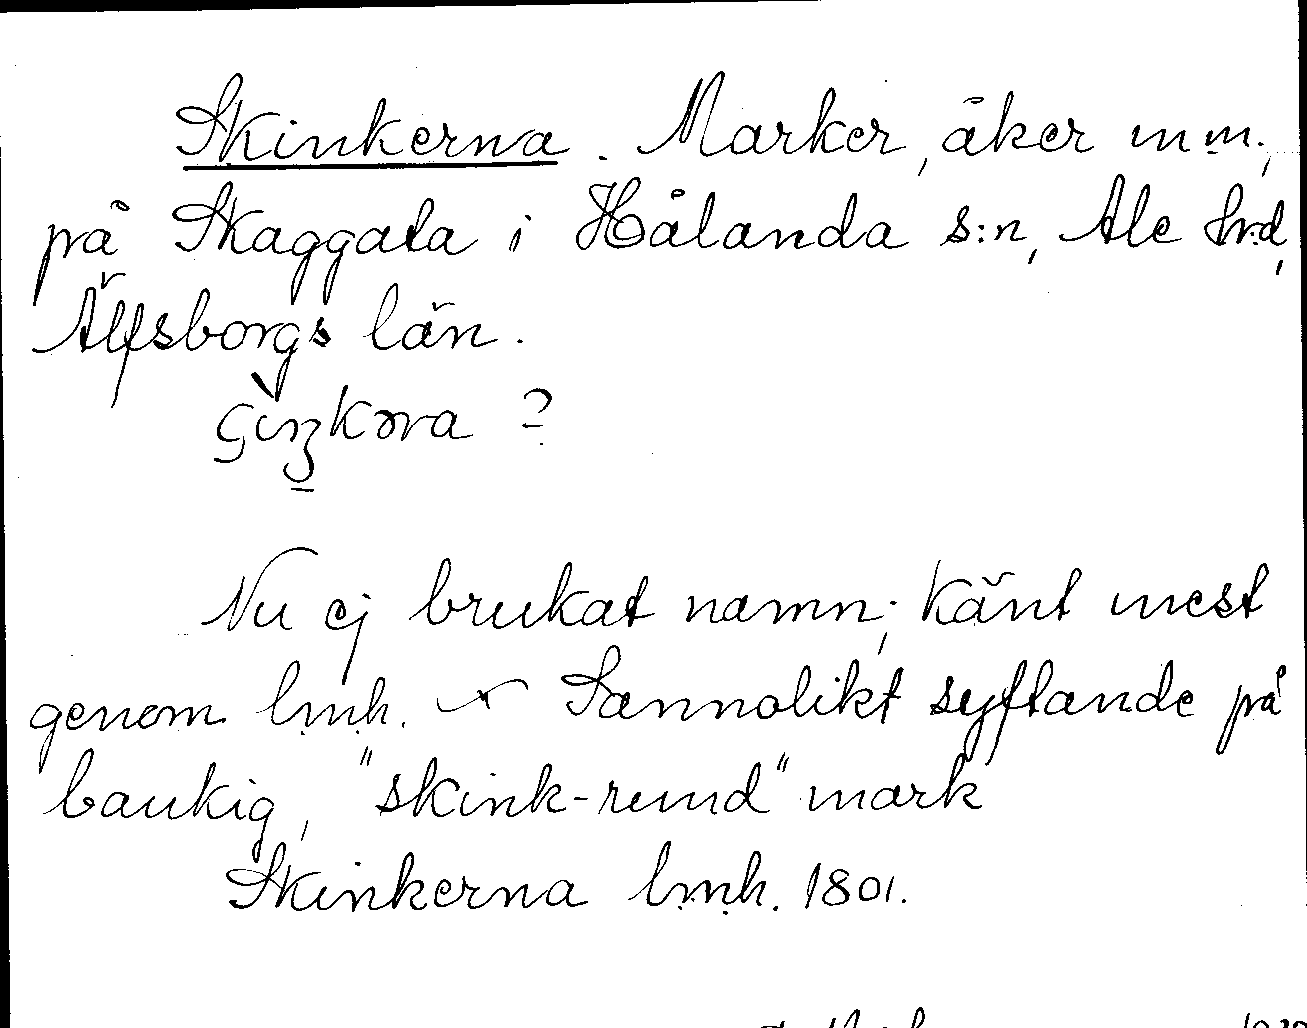 Skinkerna. Marker, åker m.m.,
på Skaggata i Hålanda s:n, Ale hrd,
Älfsborgs län.
çìŋkəra ?
Nu ej brukat namn; känt mest
genom lmh. Sannolikt syftande på
baukig, "skink-rund" mark
Skinkerna lmh. 1801.